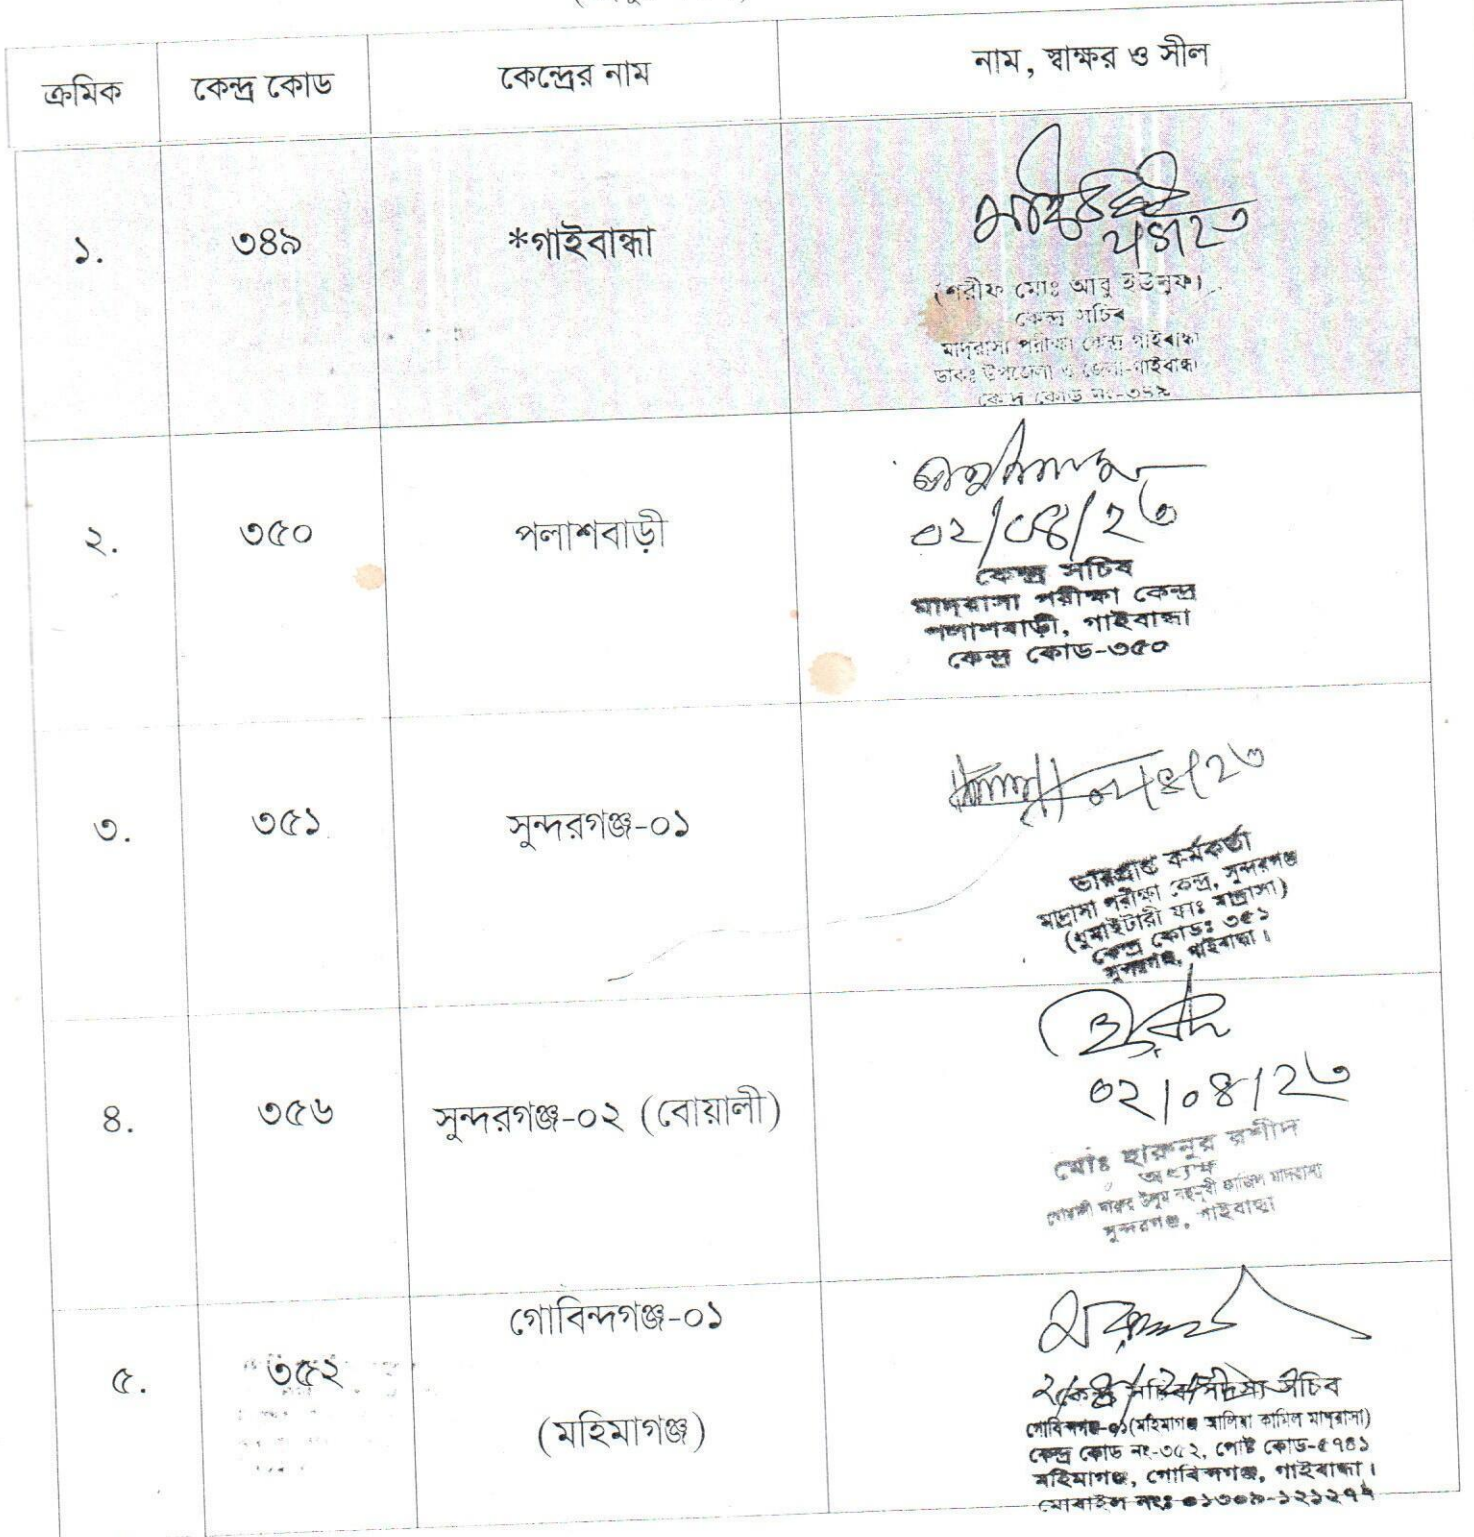 ক্রমিক কেন্দ্র কোড কেন্দ্রের নাম নাম, স্বাক্ষর ও সীল
১. ৩৪৯ *গাইবান্ধা
(শরীফ মোঃ আবু ইউসুফ)
কেন্দ্র সচিব
মাদ্রাসা পরীক্ষা কেন্দ্র গাইবান্ধা
ডাকঃ উপজেলা ও জেলা-গাইবান্ধা
কেন্দ্র কোড নং-৩৪৯
২. ৩৫০ পলাশবাড়ী
০২/০৪/২৩
কেন্দ্র সচিব
মাদরাসা পরীক্ষা কেন্দ্র
পলাশবাড়ী, গাইবান্ধা
কেন্দ্র কোড-৩৫০
৩. ৩৫১ সুন্দরগঞ্জ-০১
০২/৪/২৩
ভারপ্রাপ্ত কর্মকর্তা
মাদ্রাসা পরীক্ষা কেন্দ্র, সুন্দরগঞ্জ
(ধুমাইটারী ফাঃ মাদ্রাসা)
কেন্দ্র কোডঃ ৩৫১
সুন্দরগঞ্জ, গাইবান্ধা।
৪. ৩৫৬ সুন্দরগঞ্জ-০২ (বোয়ালী)
০২/০৪/২৩
মোঃ হারুনুর রশীদ
অধ্যক্ষ
ফাজিল মাদরাসা
সুন্দরগঞ্জ, গাইবান্ধা
৫. ৩৫২ গোবিন্দগঞ্জ-০১
(মহিমাগঞ্জ)
কেন্দ্র সচিব/সদস্য সচিব
গোবিন্দগঞ্জ-০১(মহিমাগঞ্জ আলিয়া কামিল মাদ্রাসা)
কেন্দ্র কোড নং-৩৫২, পোষ্ট কোড-৫৭৪১
মহিমাগঞ্জ, গোবিন্দগঞ্জ, গাইবান্ধা।
মোবাইল নংঃ ০১৩০৯-১২১২৭৮